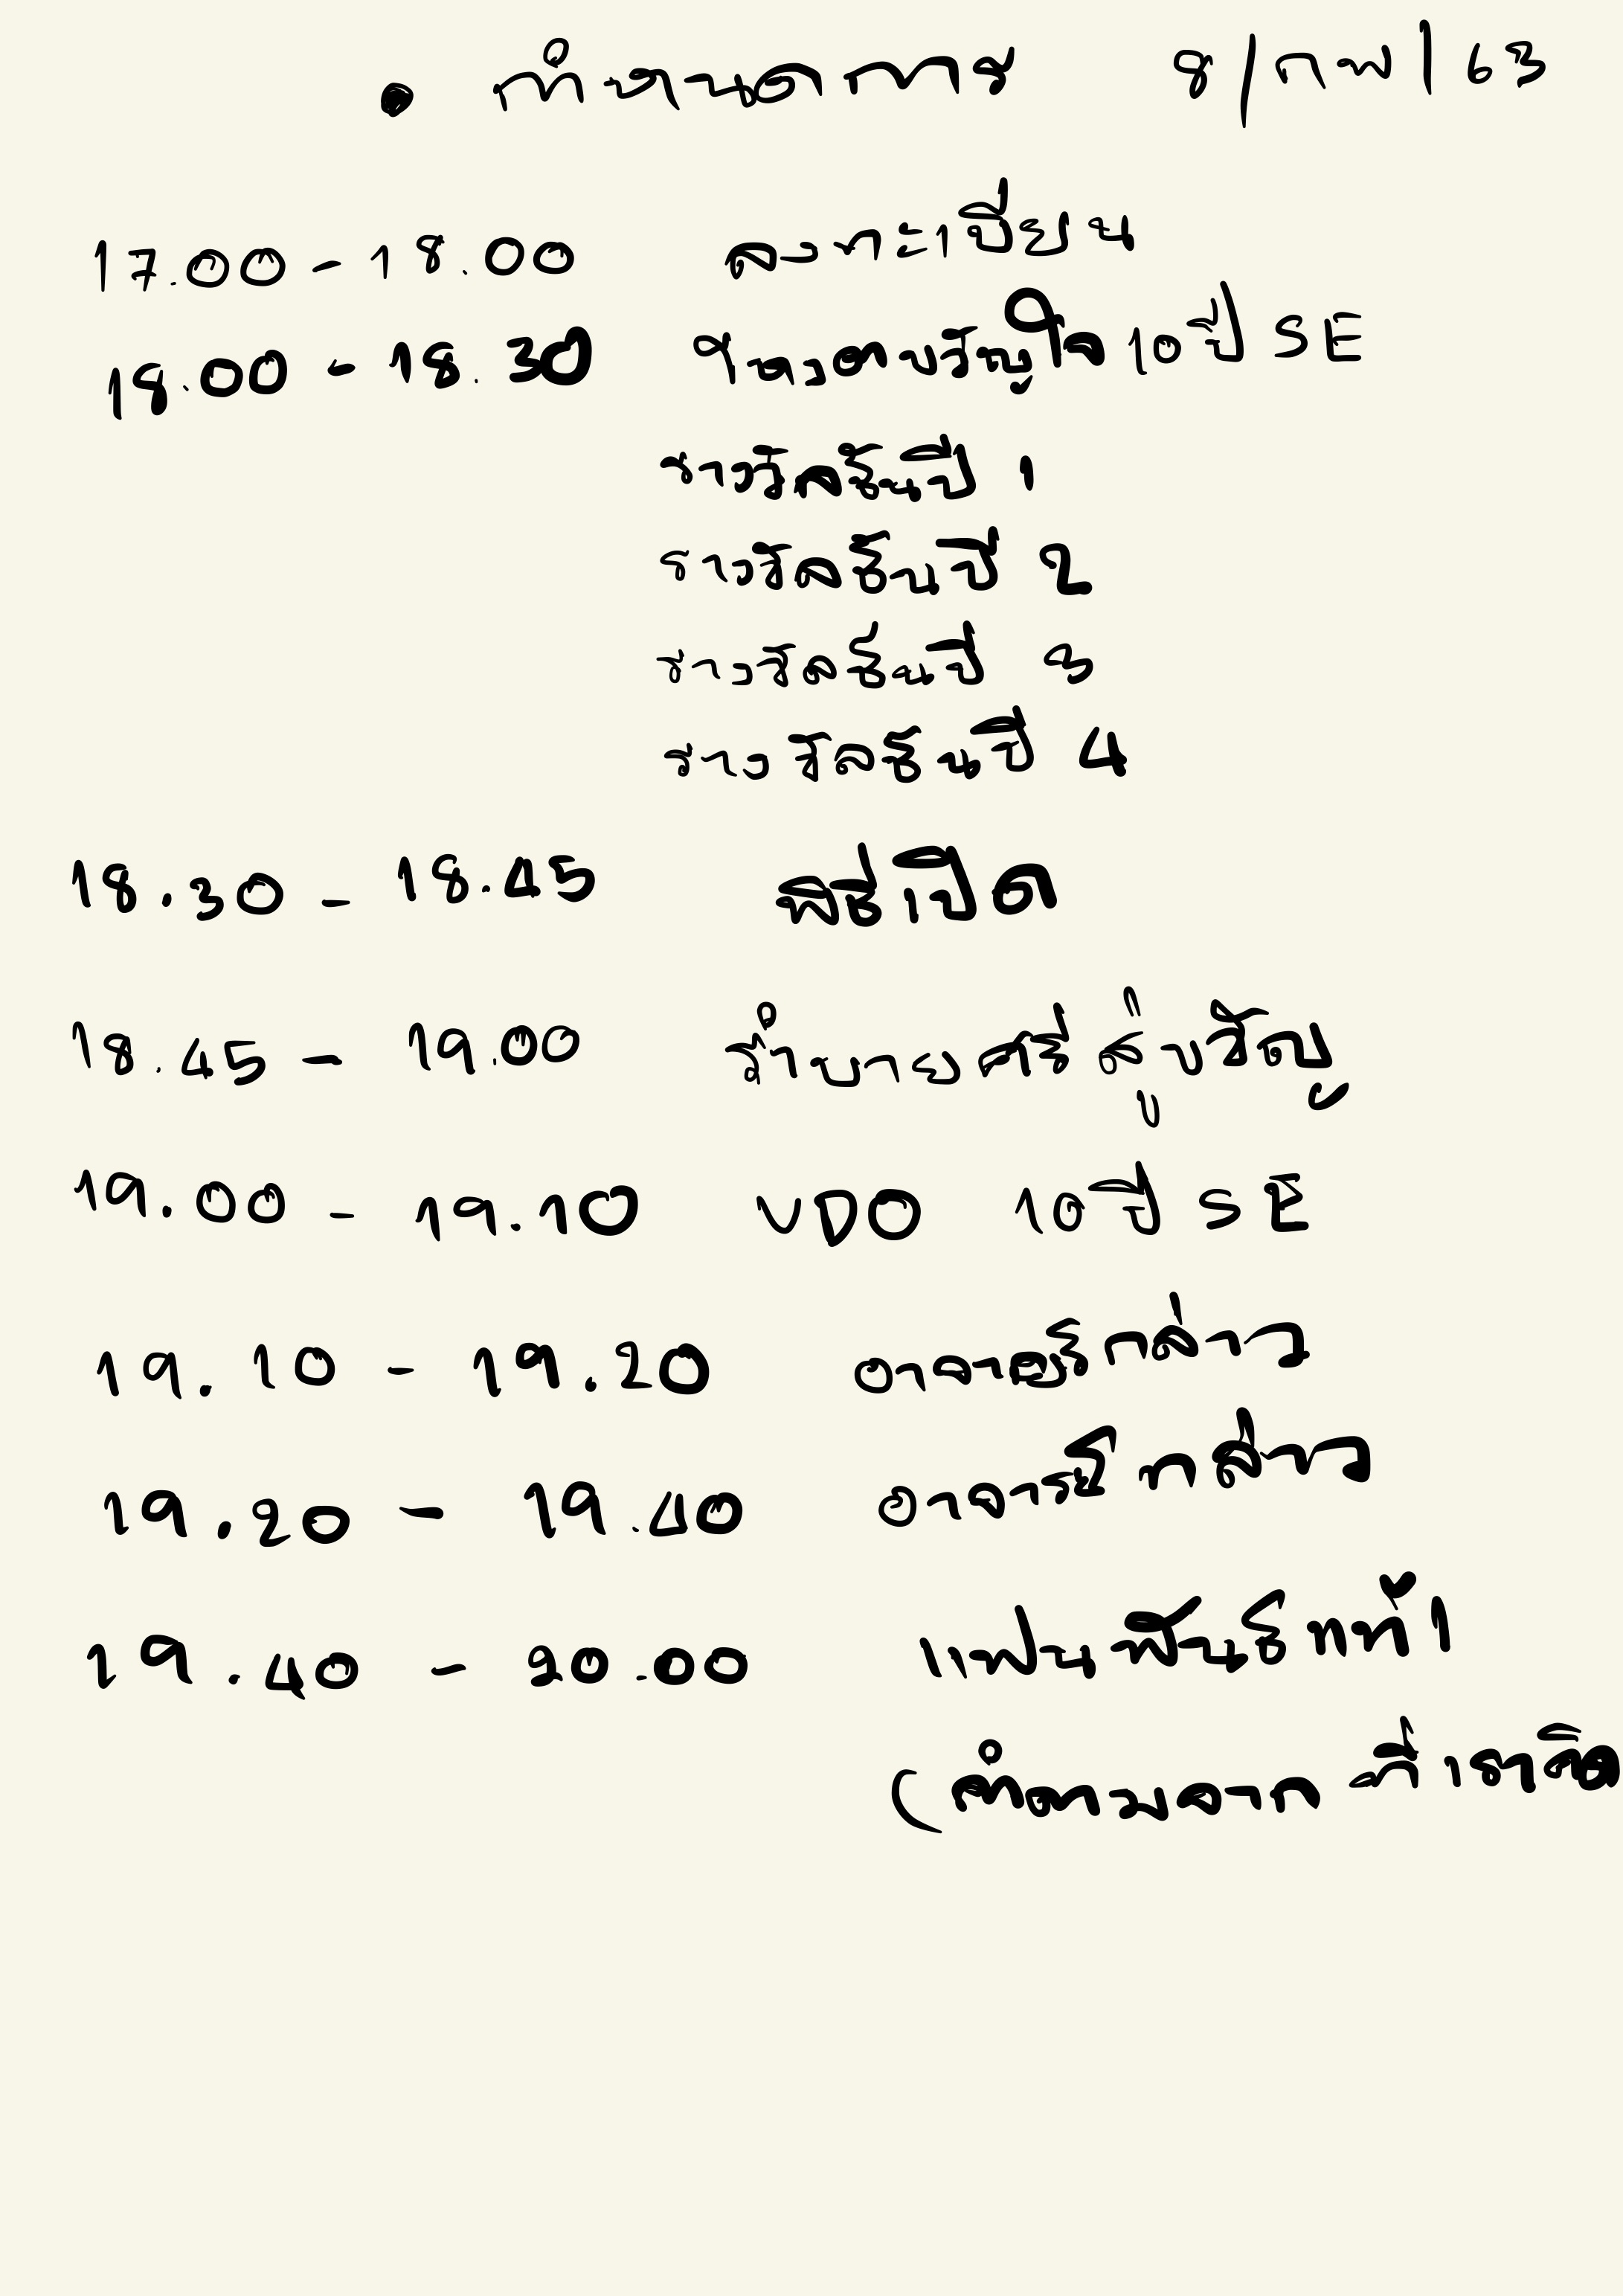 กำหนดการ 8/กพ/63
17.00 - 18.00 ลงทะเบียน
18.00 - 18.30 โหวตขวัญใจ 10 ปี SE
รางวัลชั้นปี 1
รางวัลชั้นปี 2
รางวัลชั้นปี 3
รางวัลชั้นปี 4
18.30 - 18.45 พิธีเปิด
18.45 - 19.00 รำบายศรีสู่ขวัญ
19.00 - 19.10 VDO 10 ปี SE
19.10 - 19.20 อาจารย์กล่าว
19.20 - 19.40 อาจารย์กล่าว
19.40 - 20.00 แฟนพันธุ์แท้
(คำถามจาก ที่เรา